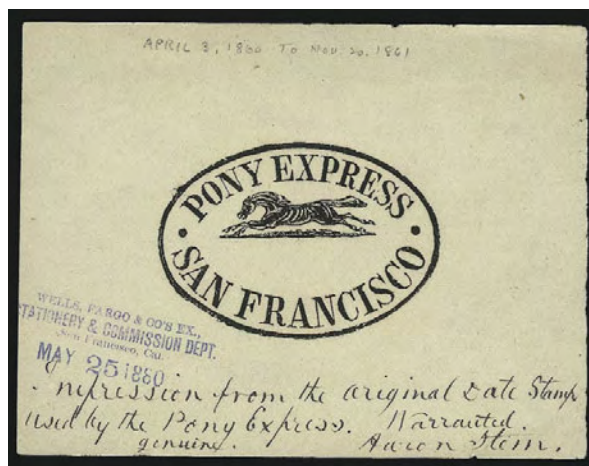 APRIL 3, 1860 TO NOV. 20, 1861
· PONY EXPRESS ·
SAN FRANCISCO
WELLS, FARGO & CO'S EX.,
STATIONERY & COMMISSION DEPT.
San Francisco, Cal.
MAY 25 1880
Impression from the original Date Stamp
used by the Pony Express. Warranted
genuine. Aaron Stein.